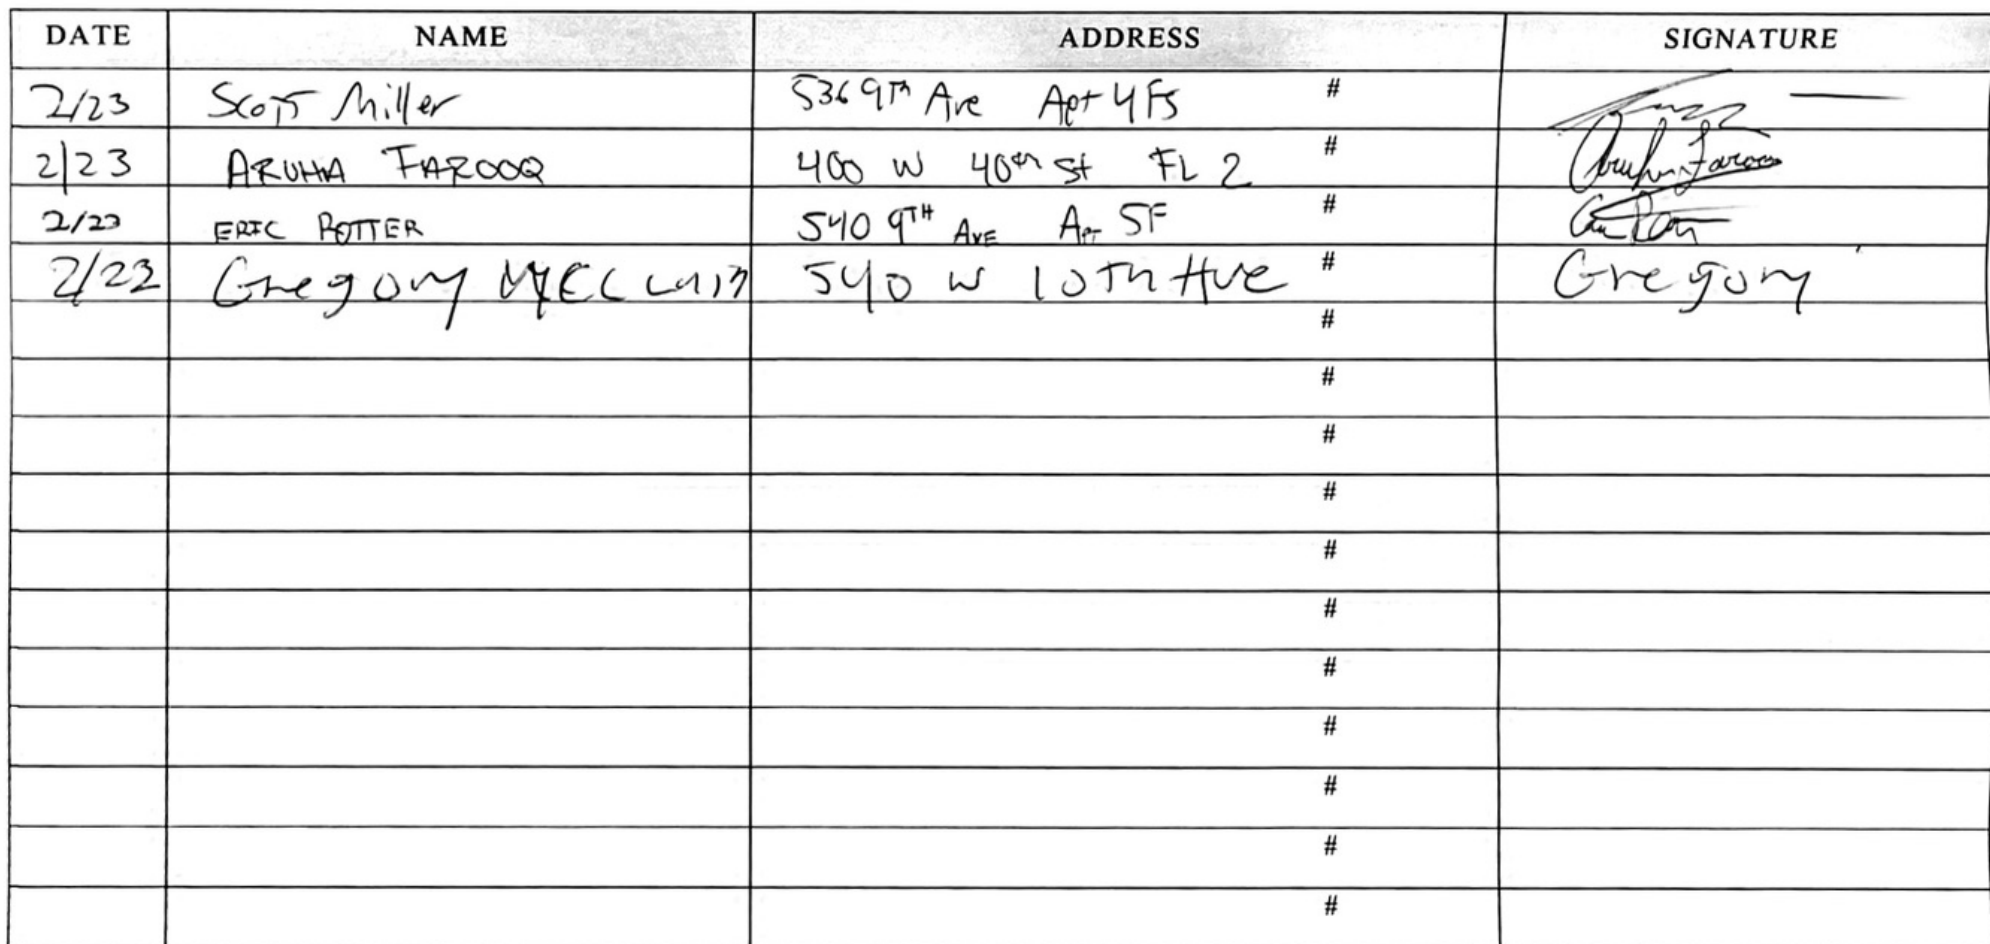 DATE NAME ADDRESS SIGNATURE
2/23 Scott Miller 536 9th Ave Apt 4FS #
2/23 ARUHA FAROOQ 400 W 40th St FL 2 # Aruha Farooq
2/23 ERIC POTTER 540 9TH AVE Apt 5F #
2/23 Gregory 540 W 10Th Ave # Gregory
#
#
#
#
#
#
#
#
#
#
#